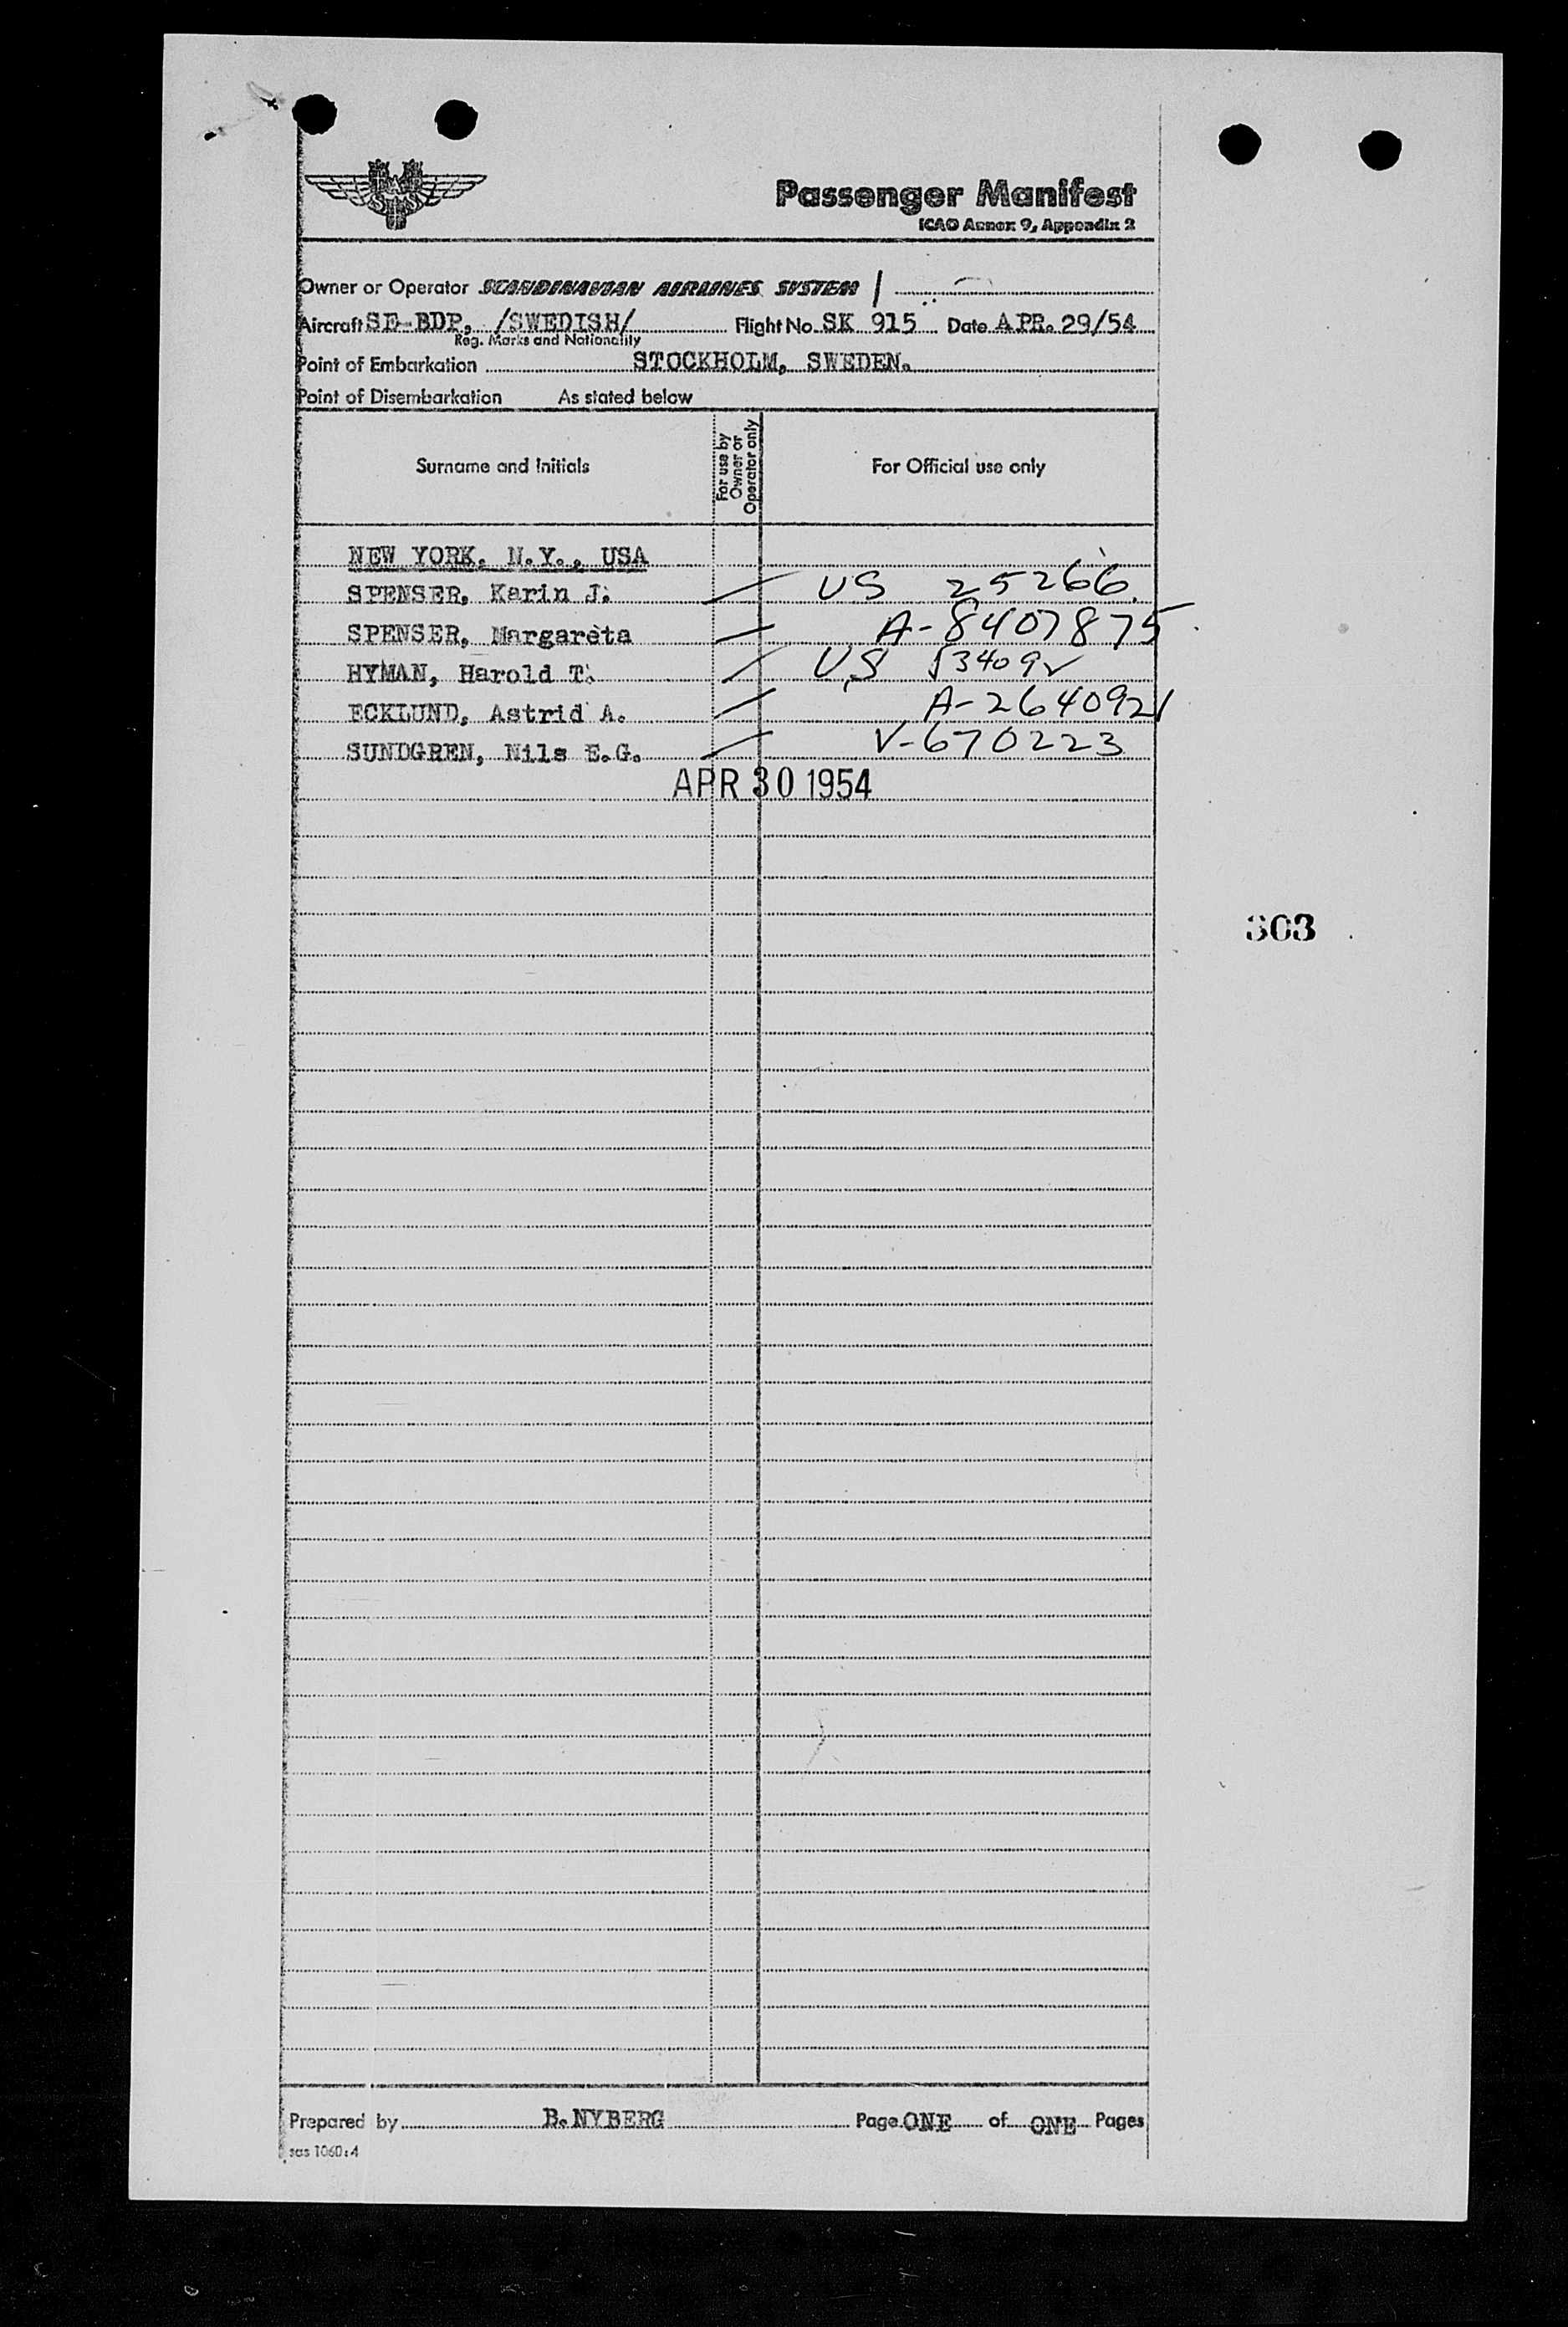 SAS
Passenger Manifest
ICAO Annex 9, Appendix 2
Owner or Operator SCANDINAVIAN AIRLINES SYSTEM /
Aircraft SE-BDP, /SWEDISH/ Flight No. SK 915 Date APR. 29/54
Reg. Marks and Nationality
Point of Embarkation STOCKHOLM, SWEDEN.
Point of Disembarkation As stated below
Surname and Initials For use by Owner or Operator only For Official use only
NEW YORK. N.Y., USA
SPENSER, Karin J. US 25266
SPENSER, Margareta A-8407875
HYMAN, Harold T. US
ECKLUND, Astrid A. A-2640921
SUNDGREN, Nils E.G. V-670223
APR 30 1954
303
Prepared by B. NYBERG Page ONE of ONE Pages
sas 1060:4